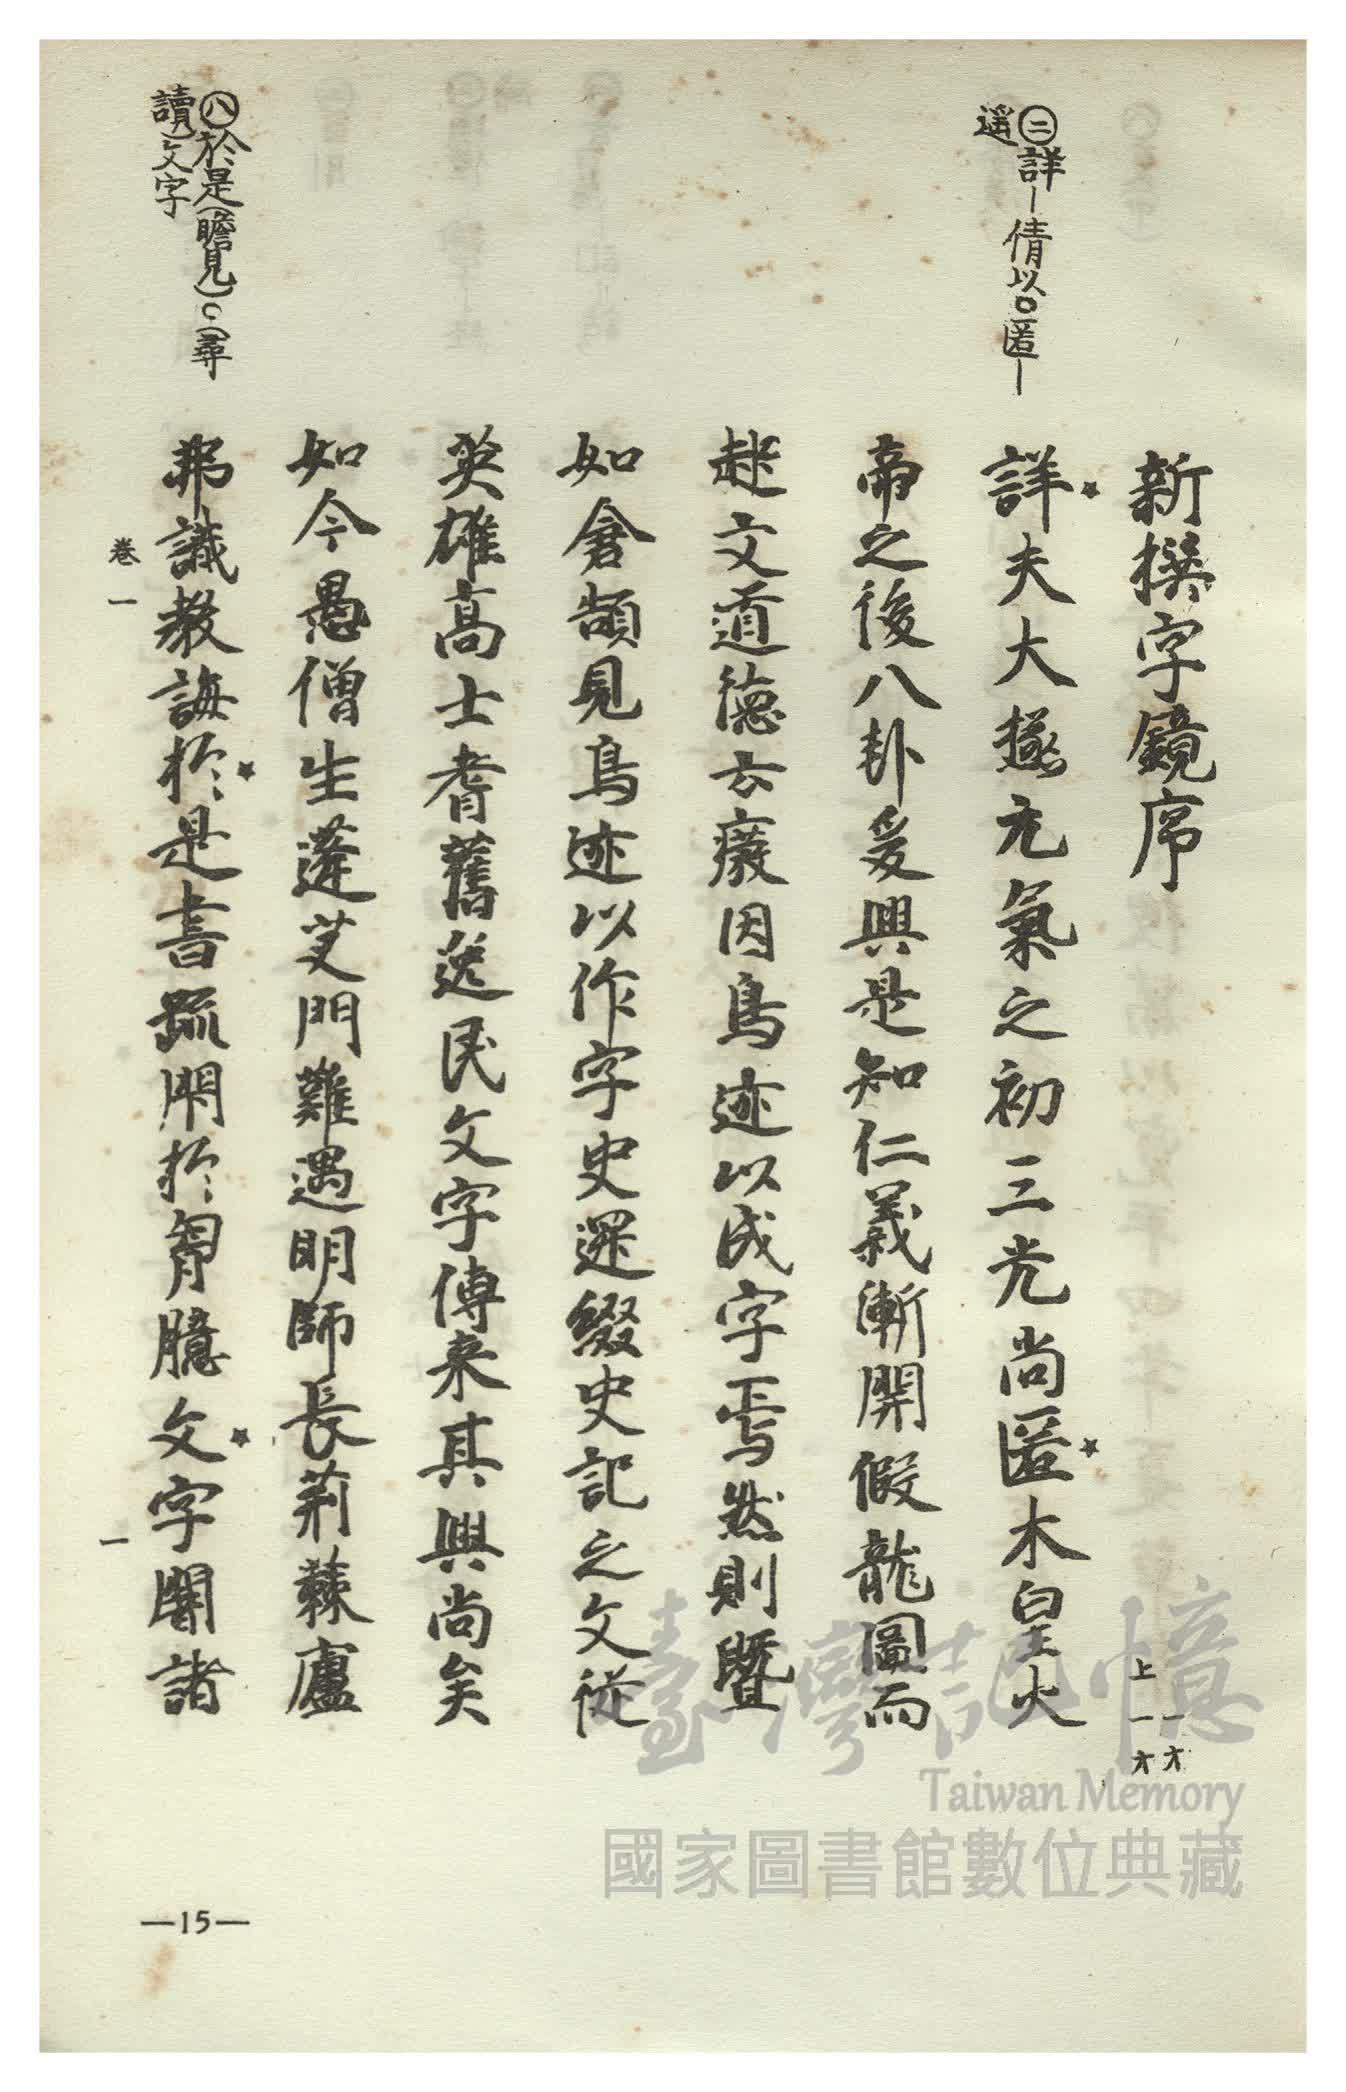 新撰字鏡序
上一オ
一オ
㊁詳─倩以○匿─
遥
詳夫大極元氣之初三光尚匿木皇火
帝之後八卦爰興是知仁義漸開假龍圖而
起文道德云廢因鳥迹以成字焉然則暨
如倉頡見鳥迹以作字史遷綴史記之文從
英雄高士耆舊逸民文字傳来其興尚矣
如今愚僧生蓬艾門難遇明師長荊蕀廬
弗識教誨於是書疏閇於胷臆文字闇諸
㊇於是(瞻見)○(尋
讀)文字
卷一
一
—15—
臺灣記憶
Taiwan Memory
國家圖書館數位典藏